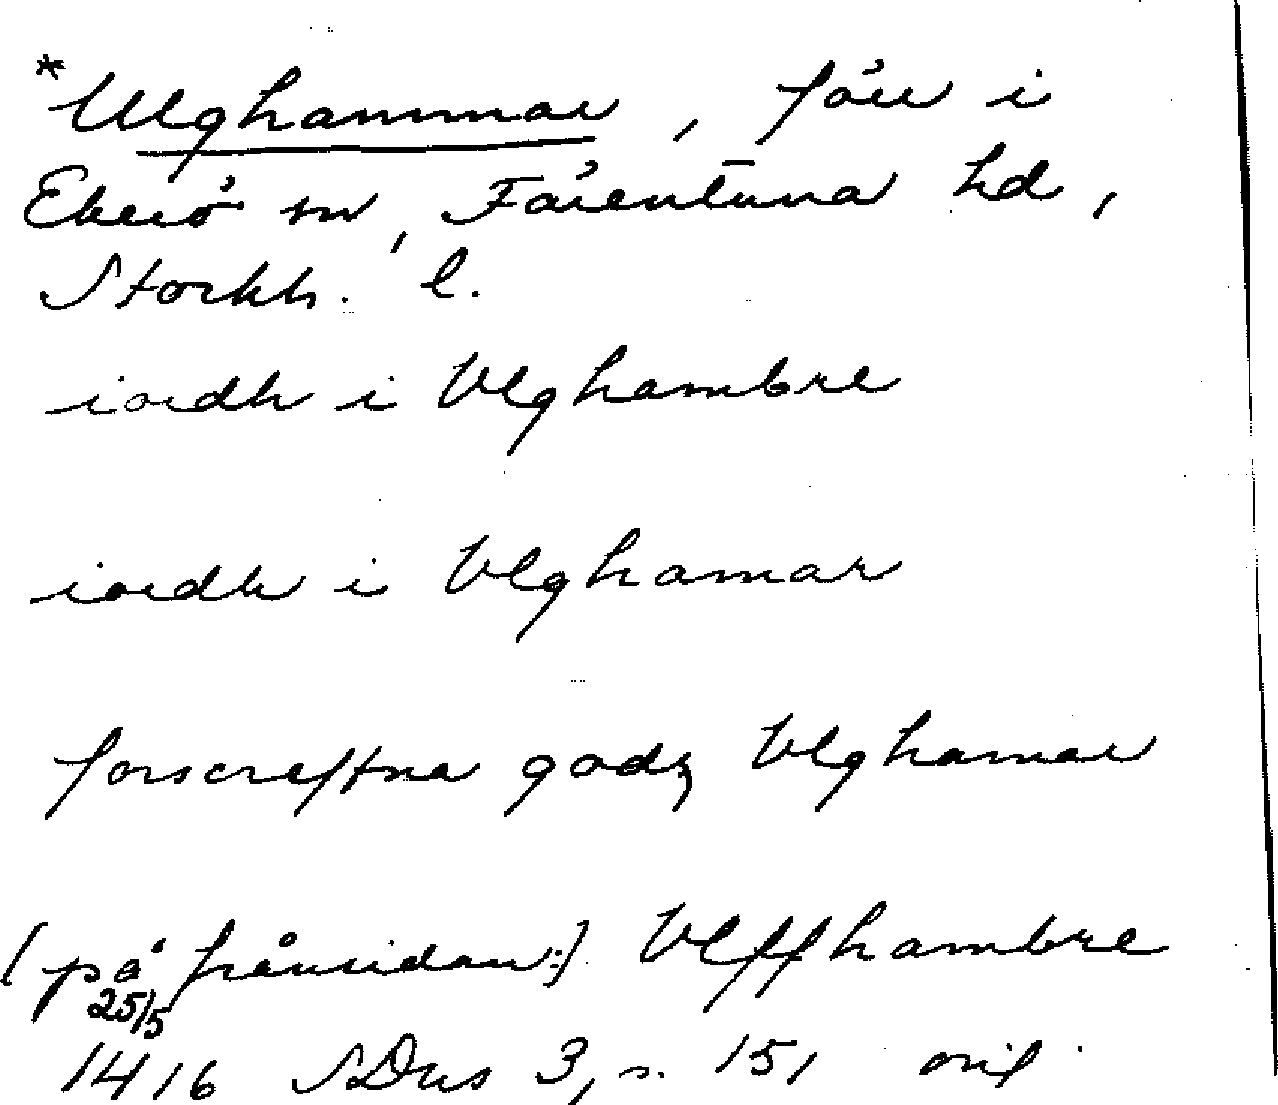 *Ulghammar, förr i
Ekerö sn, Färentuna hd,
Stockh. l.
iordh i Vlghambre
iordh i Vlghamar
forscreffna godz Vlghamar
[på frånsidan:] Vlffhambre
25/5
1416 SDns 3, s. 151 orig.